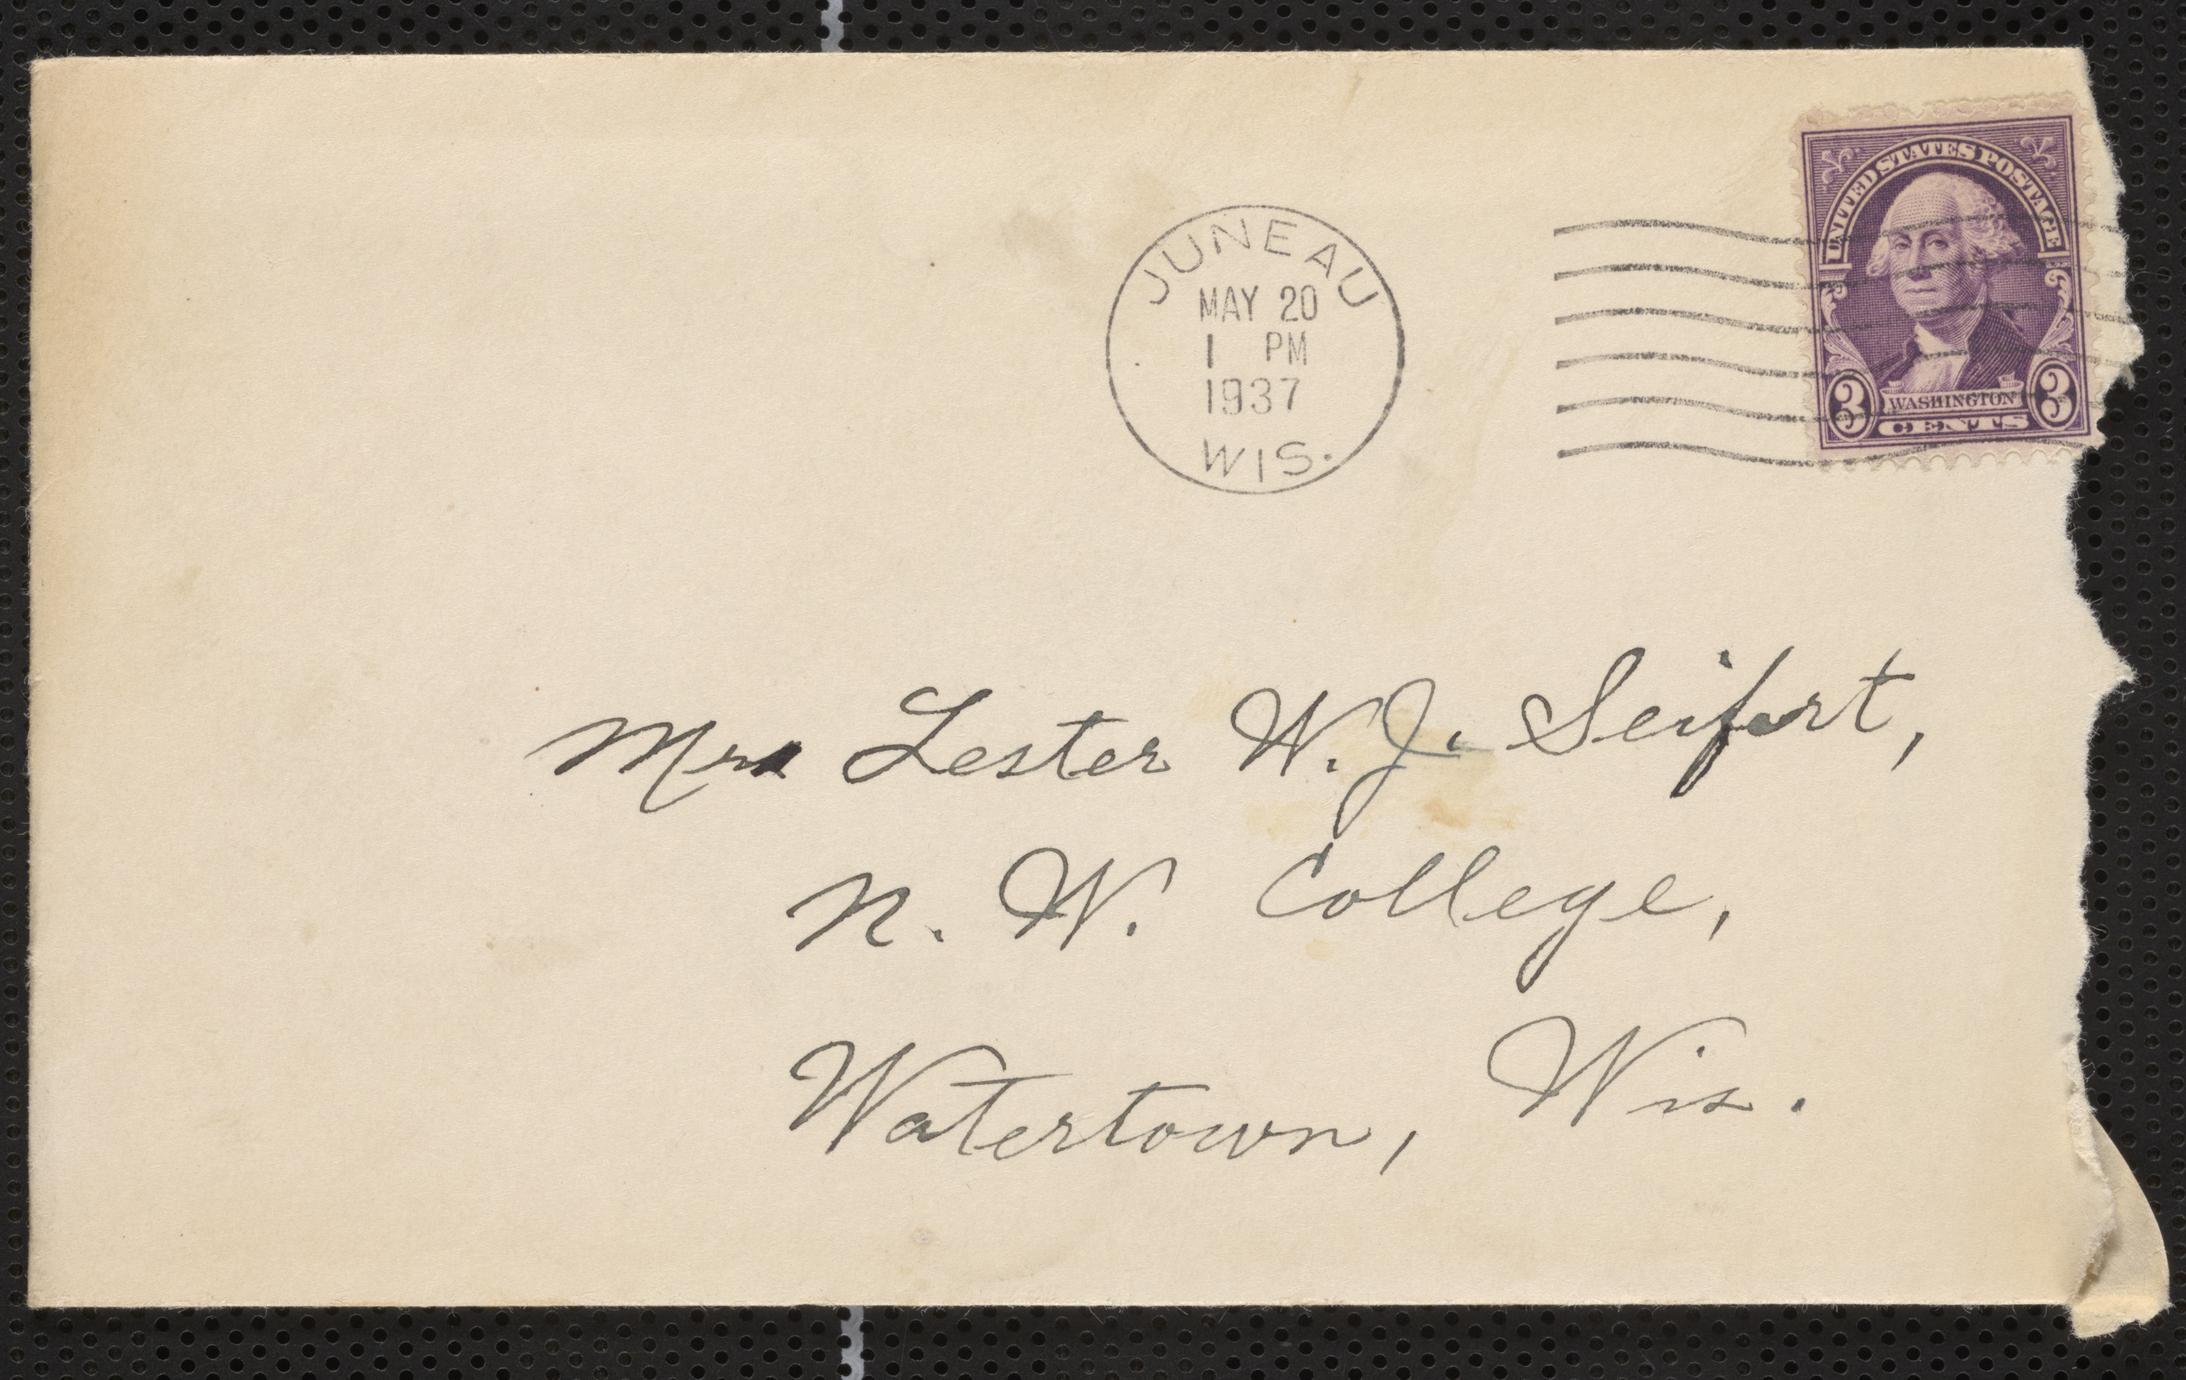 JUNEAU
MAY 20
1 PM
1937
WIS.
UNITED STATES POSTAGE
3 WASHINGTON 3
CENTS
Mrs Lester W. J. Seifert,
N. W. College,
Watertown, Wis.